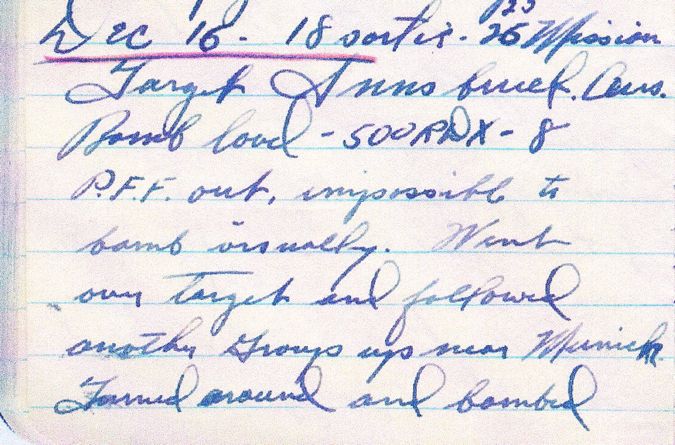 23
Dec 16 - 18 sortie - 26 Mission
Target Innsbruck. Aus.
Bomb load - 500 RDX - 8
P.F.F. out, impossible to
bomb visually. Went
over Target and followed
another Group up near Munich.
Turned around and bombed